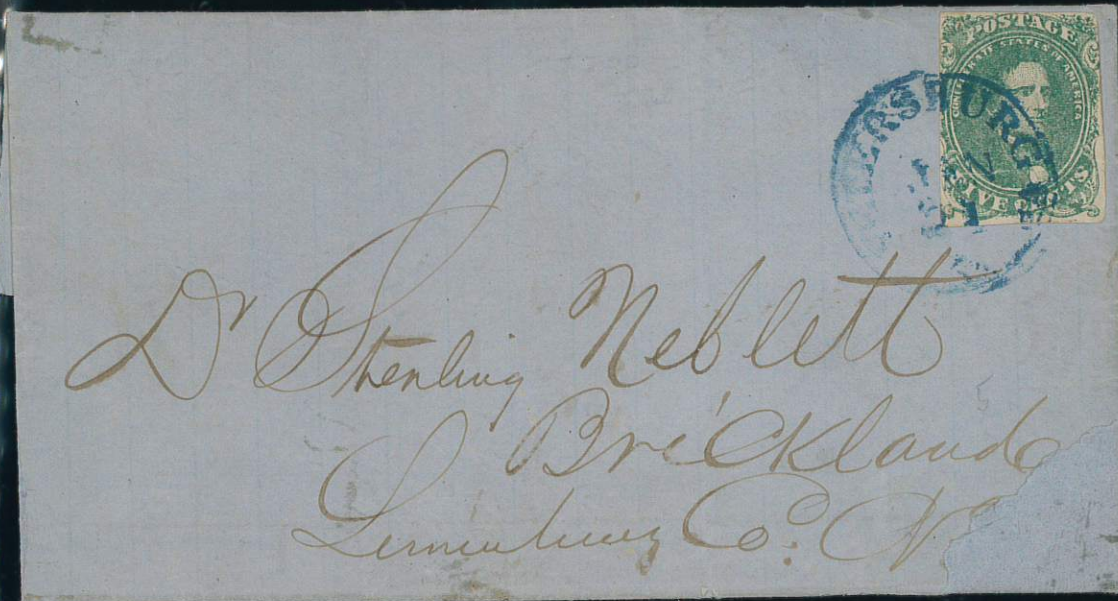 POSTAGE
CONFEDERATE STATES OF AMERICA
FIVE CENTS
ERSBURG
Dr Sterling Neblett
Brickland
Lunenburg Co.